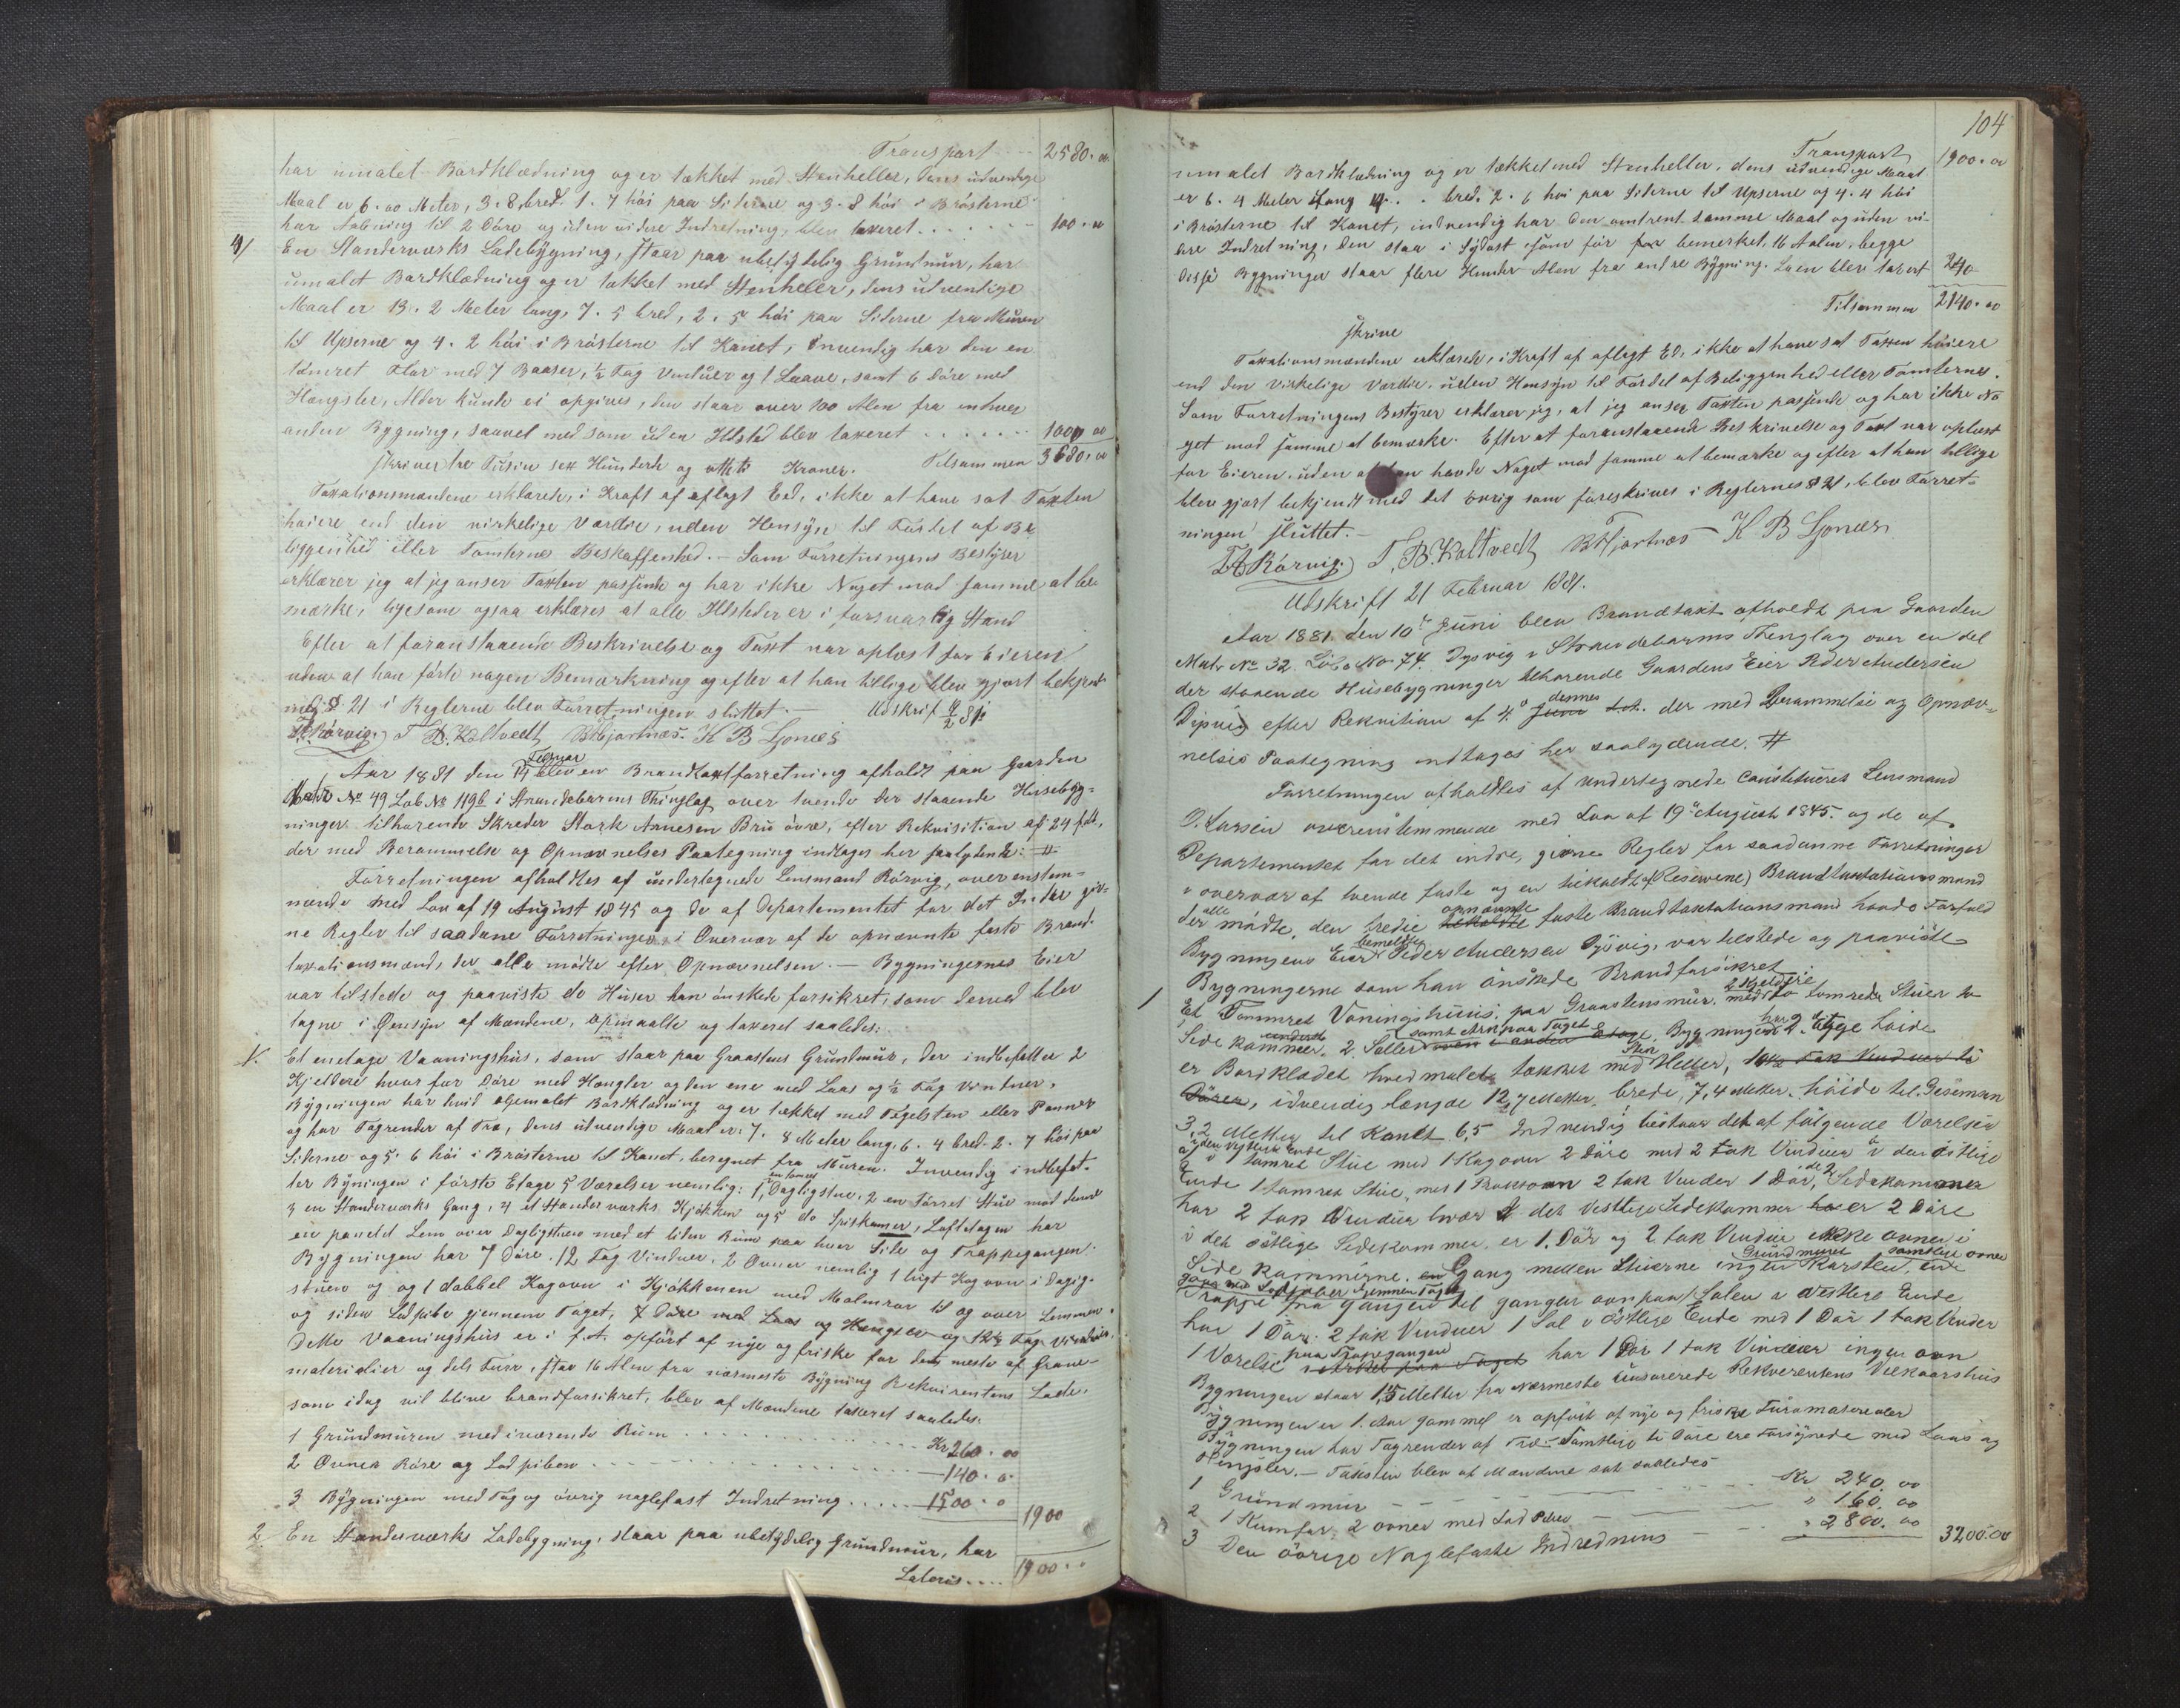 Transport 2580.00
har umalet Bordklædning og er tækket med Stenheller, dens udvendige
Maal er 6.00 Meter, 3.8 bred. 1.7 høi paa Siderne og 3.8 høi i Brösterne
har Aabning til 2 Döre og uden videre Indretning, blev taxeret 100.00
4/ En Standerværks Ladebygning, staar paa ubetydelig Grundmur, har
umalet Bordklædning og er tækket med Stenheller, dens udvendige
Maal er 13.2 Meter lang, 7.5 bred, 2.5 høi paa Siderne fra Muren
til Upserne og 4.2 høi i Brösterne til Kanet, invendig har den en
tömret Flor med 7 Baaser, ½ Fag Vinduer og 1 Laave, samt 6 Döre med
Hængsler, Alder kunde ei opgives, den staar over 100 Alen fra enhver
anden Bygning, saavel med som uden Ildsted blev taxeret 1000 00
skriver tre Tusin sex Hundrede og otteti Kroner. Tilsammen 3680.00
Taxationsmændene erklærede, i Kraft af aflagt Eed, ikke at have sat Taxten
høiere end den virkelige Værdie, uden Hensyn til Fordel af Be
liggenhed eller Tomternes Beskaffenhed. – Som Forretningens Bestyrer
erklærer jeg at jeg anser Taxten passende og har ikke Noget mod samme at be
mærke, ligesom ogsaa erklæres at alle Ildsteder er i forsvarlig Stand
Efter at foranstaaende Beskrivelse og Taxt var oplæst for Eieren
uden at han førte nogen Bemærkning og efter at han tillige blev gjort bekjendt
med § 21 i Reglerne blev Forretningen sluttet. – Udskrif 4/2 81
Rörvig. T. B. Koltvedt B Hjortnæs. K B Ljones
Aar 1881 den 14 Februar blev en Brandtaxtforretning afholdt paa Gaarden
Matr No 49 Løb No 119b i Strandebarms Thinglag over tvende der staaende Husebyg-
ninger tilhørende Skreder Stark Arnesen Bru övre, efter Rekvisition af 24 f. M.,
der med Berammelse og Opnævnelses Paategning indtages her saalydende: #
Forretningen afholdtes af undertegnede Lensmand Rörvig, overenstem-
mende med Lov af 19 August 1845 og de af Departementet for det Indre giv-
ne Regler til saadane Forretninger, i Overvær af de opnævnte faste Brand-
taxationsmænd, der alle mødte efter Opnævnelsen. – Bygningernes Eier
var tilstede og paaviste de Huser han ønskede forsikret, som derved blev
tagne i Øiesyn af Mændene, opmaalte og taxeret saaledes:
1. Et enetages Vaaningshus, som staar paa Graastens Grundmur, der indbefatter 2
Kjeldere hvorfor Döre med Hængsler og den ene med Laas og ½ Fag Vinduer,
Bygningen har hvid oljemalet Bordklædning og er tækket med Tagelsten eller Panner
og har Tagrender af Træ, dens udvendige Maal er: 7.8 Meter lang. 6.4 bred. 2.7 høi paa
Siderne og 5.6 høi i Brösterne til Kanet, beregnet fra Muren. Invendig indbefat-
ter Byningen i første Etage 5 Værelser nemlig: 1, en tömret Dagligstue, 2 en Tørret Stue mod denne
3 en Standerværks Gang, 4 et Standerværks Kjökken og 5 do Spiskamer, Loftetagen har
en panelet Lem over Dagligstuen med et liden Rum paa hver Side og Trappegangen.
Bygningen har 7 Döre, 12 Fag Vinduer, 2 Ovner nemlig 1 lugt Kogovn i Daglig-
stuen og 1 dobbel Kogovn i Kjökkenen med Malmrør til og over Lemmen
og siden Ladpibe gjennem Taget, 7 Döre med Laas og Hængsler og 12½ Fag Vinduer.
Dette Vaaningshus er i f. A. opfört af nye og friske for det meste af Grane-
materialier og dels Furu, staar 16 Alen fra nærmeste Bygning Rekvirentens Lade,
som idag vil blive brandforsikret, blev af Mændene taxeret saaledes:
1 Grundmuren med iværende Rum Kr 260.00
2 Ovnes Röre og Ladpiben 140.0
3 Bygningen med Tag og övrig naglefast Indretning 1500.0 1900
2 En Standerværks Ladebygning, staar paa ubetydelig Grundmur, har
Lateris 1900..
104
Transport 1900.00
umalet Bordklædning og er tækket med Stenheller, dens udvendige Maal
er 6.4 Meter lang 4. . bred. 2.6 høi paa Siderne til Upserne og 4.4 høi
i Brösterne til Kanet, indvendig har den omtrent samme Maal og uden vi-
dere Indretning, den staar i Sydost som før for bemerket, 16 Alen, begge
disse Bygninger staar flere Hunder Alen fra andre Bygning. Laen blev taxert 240
Tilsammen 2140.00
skrive
Taxationsmændene erklærede, i Kraft af aflagt Ed, ikke at have sat Taxten høiere
end den virkelige Værdie, uden Hensyn til Fordel af Beliggenhed eller Tomternes.
Som Forretningens Bestyrer erklærer jeg, at jeg anser Taxten passende og har ikke No
get mod samme at bemærke. Efter at foranstaaende Beskrivelse og Taxt var oplæst
for Eieren uden at han havde Noget mod samme at bemærke og efter at han tillige
blev gjort bekjendt med det övrig som foreskrives i Reglernes § 21, blev Forret-
ningen sluttet. –
Rörvig. T. B. Koltvedt B Hjortnæs K B Ljones
Udskrift 21 Februar 1881.
Aar 1881 den 10de Juni blev Brandtaxt afholdt paa Gaarden
Matr No 32. Løbe No 74. Dysvig i Strandebarms Thinglag over en del
der staaende Husebygninger tilhørende Gaardens Eier Peder Andersen
Dysvig efter Rekvisition af 4de dennes Juni d.A. der med Berammelse og Opnæv-
nelses Paategning indtages her saalydende. #
Forretningen afholdtes af undertegnede constitueret Lensmand
O. Larsen overenstemmende med Lov af 19de August 1845. og de af
Departementet for det indre, givne Regler for saadanne Forretninger
i overvær af tvende faste og en tilkaldt (Reserve) Brandtaxtationsmand
der alle mødte, den tredie opnævnte tilkaldte faste Brandtaxtationsmand havde Forfald
Bygningens Eier bemeldte Peder Andersen Dysvig, var tilstede og paaviste
Bygningerne som han önskede Brandforsikret
1 Et Tømmret Vaaningshuus, paa Graastensmur, med 2 Kjeldere to tomrede Stuer to
Sede kammer. 2. Saller samt Ark paa Taget oven i anden Etage, Bygningen har 2 Etage høide
er Bordkladet hvidmalet, tækket med Sten Heller, 10½ fak Vinduer ti
Dörer, udvendig længde 12,7 Metter, brede, 7,4 Metter, höide til Gesemsen
3,2 Metter til Kanet 6,5 Indvendig bestaar det af følgende Værelser
a i den Vestlige Ende 1 tömret Stue med 1 Kogovn 2 Döre med 2 fak Vinduer i den östlige
Ende 1 tømret Stue, med 1 Kakovn 2 fak Vinder 1 Dör, de 2 Sedekammer
har 2 fak Vinduer hvær i det vestlige Sedekammer har er 2 Döre
i det östlige Sedekammer, er 1. Dör og 2 fak Vinduer ekke ovner i
Side kammerne. en Gang mellem Stuerne ingen Grundmuret Skorsten, samtlige ovner
gaar med Ladpiber gjennem Taget
Trappe fra Gangen til ganger ovnpaa Salen i vestlige Ende
har 1 Dör. 2 fak Vinduer 1 Sal i östlige Ende med 1 Dör 1 fak Vinder
1 Værelse paa Trapegangen i Arken paa Taget har 1 Dör 1 fak Vinduer ingen ovn
Bygningen staar 1,5 Metter fra nærmeste uasurerede Rekverentens Velkaarshus
Bygningen er 1. Aar gammel er opfört af nye og friske Furomaterealer
Bygningen har Tagrender af Træ – Samtlige ti Döre ere forsynede med Laas og
Hengsler. – Taksten blev af Mændene sat saaledes
1 Grundmur Kr 240.00
2 1 Kumfur, 2 ovner med Lad Piber " 160.00
3 Den övrige Naglefaste Indredning " 2800.00 3200.00